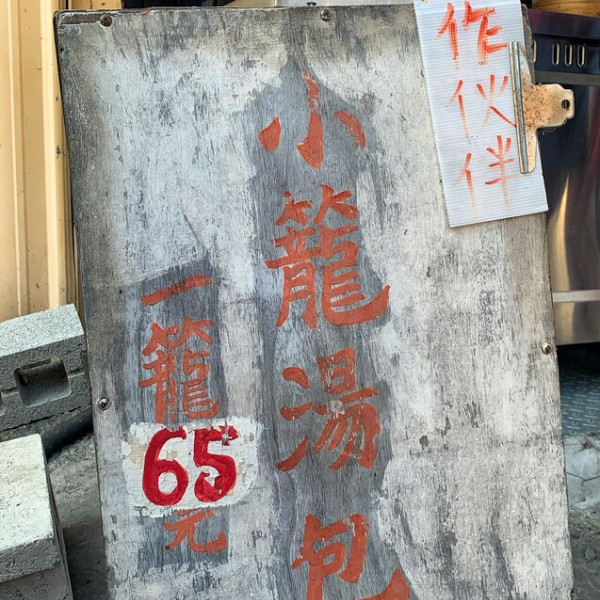 作伙伴
小籠湯包
一籠65元